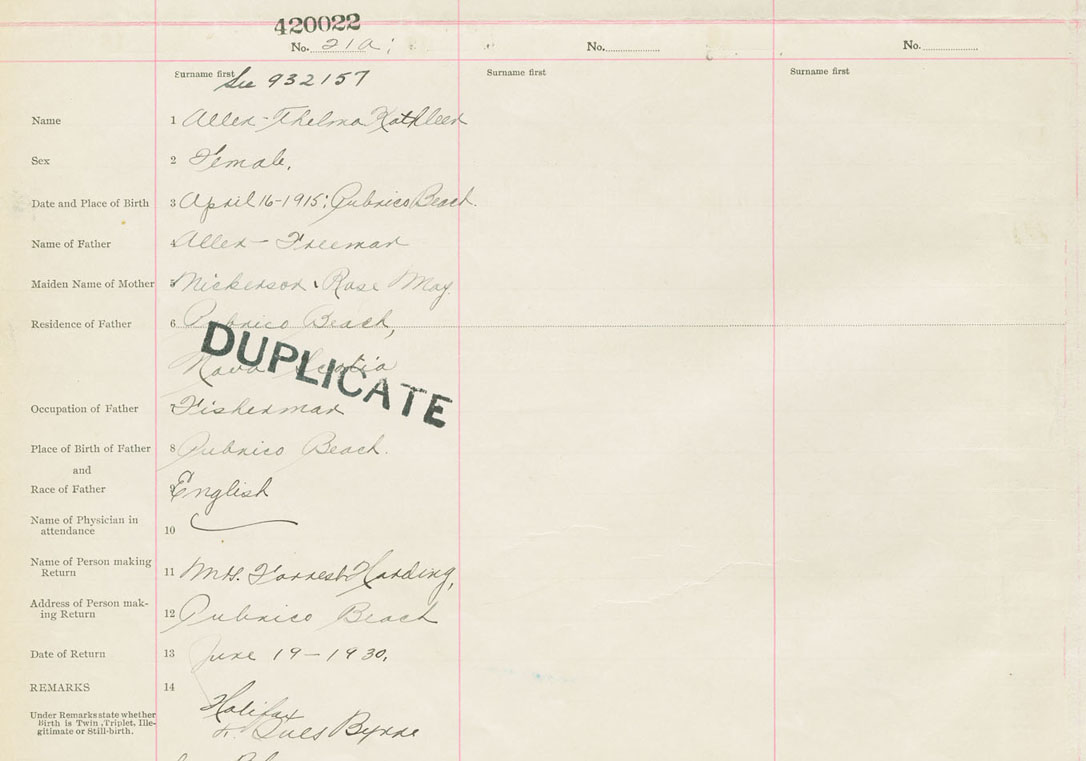 420022
No. 21a;
No.
No.
Surname first
Surname first
Surname first
See 932157
Name 1 Allen - Thelma Kathleen
Sex 2 Female.
Date and Place of Birth 3 April 16-1915; Pubnico Beach.
Name of Father 4 Allen - Freeman
Maiden Name of Mother 5 Nickerson, Rose May.
Residence of Father 6 Pubnico Beach,
Nova Scotia
DUPLICATE
Occupation of Father 7 Fisherman
Place of Birth of Father 8 Pubnico Beach.
and
Race of Father 9 English
Name of Physician in
attendance 10
Name of Person making
Return 11 Mrs. Forrest Harding,
Address of Person mak-
ing Return 12 Pubnico Beach
Date of Return 13 June 19-1930.
REMARKS 14
Halifax
Under Remarks state whether
Birth is Twin, Triplet, Ille-
gitimate or Still-birth.
Byrne